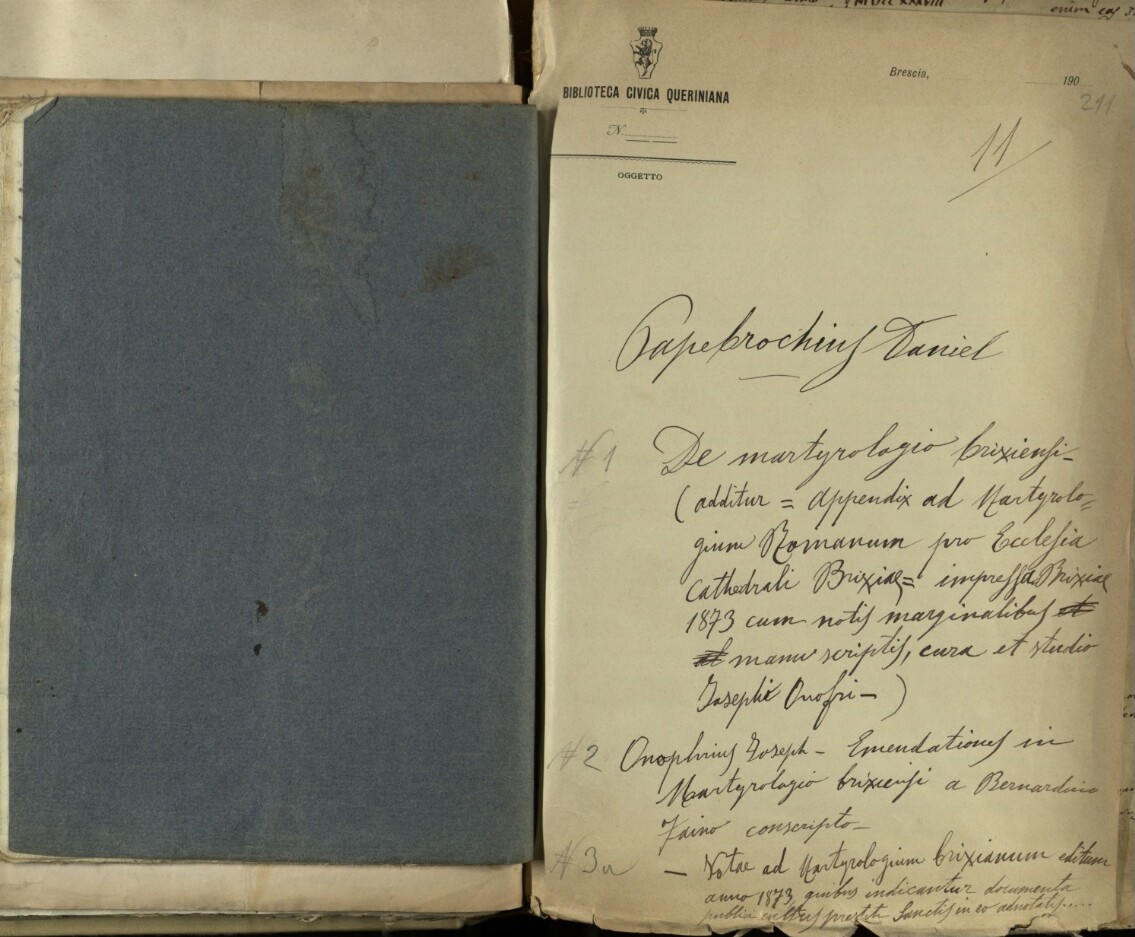 MDCCXXXVIII
enim eas
Brescia, 190
BIBLIOTECA CIVICA QUERINIANA
241
N.
11
OGGETTO
Papebrochius Daniel
N 1 De martyrologio brixiensi -
(additur = Appendix ad Martyrolo=
gium Romanum pro Ecclesia
Cathedrali Brixiae = impressa Brixiae
1873 cum notis marginalibus et
et manu scriptis, cura et studio
Josephi Onofri - )
N 2 Onophrius Joseph - Emendationes in
Martyrologio brixiensi a Bernardino
Faino conscripto -
N 3 - Notae ad Martyrologium brixianum editum
anno 1873 quibus indicantur documenta
publici cultus Sanctis in eo adnotatis.....